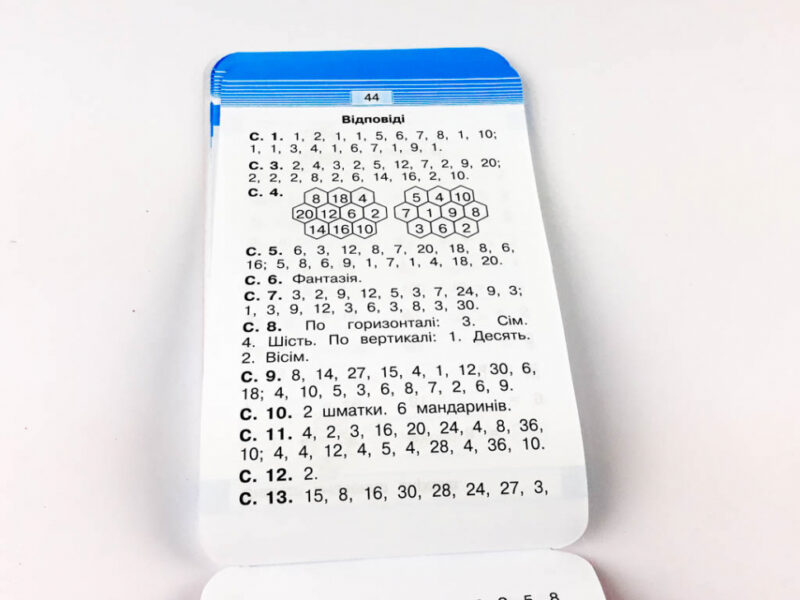 44
Відповіді
С. 1. 1, 2, 1, 1, 5, 6, 7, 8, 1, 10;
1, 1, 3, 4, 1, 6, 7, 1, 9, 1.
С. 3. 2, 4, 3, 2, 5, 12, 7, 2, 9, 20;
2, 2, 2, 8, 2, 6, 14, 16, 2, 10.
С. 4.
8 18 4 5 4 10
20 12 6 2 7 1 9 8
14 16 10 3 6 2
С. 5. 6, 3, 12, 8, 7, 20, 18, 8, 6,
16; 5, 8, 6, 9, 1, 7, 1, 4, 18, 20.
С. 6. Фантазія.
С. 7. 3, 2, 9, 12, 5, 3, 7, 24, 9, 3;
1, 3, 9, 12, 3, 6, 3, 8, 3, 30.
С. 8. По горизонталі: 3. Сім.
4. Шість. По вертикалі: 1. Десять.
2. Вісім.
С. 9. 8, 14, 27, 15, 4, 1, 12, 30, 6,
18; 4, 10, 5, 3, 6, 8, 7, 2, 6, 9.
С. 10. 2 шматки. 6 мандаринів.
С. 11. 4, 2, 3, 16, 20, 24, 4, 8, 36,
10; 4, 4, 12, 4, 5, 4, 28, 4, 36, 10.
С. 12. 2.
С. 13. 15, 8, 16, 30, 28, 24, 27, 3,
5, 8